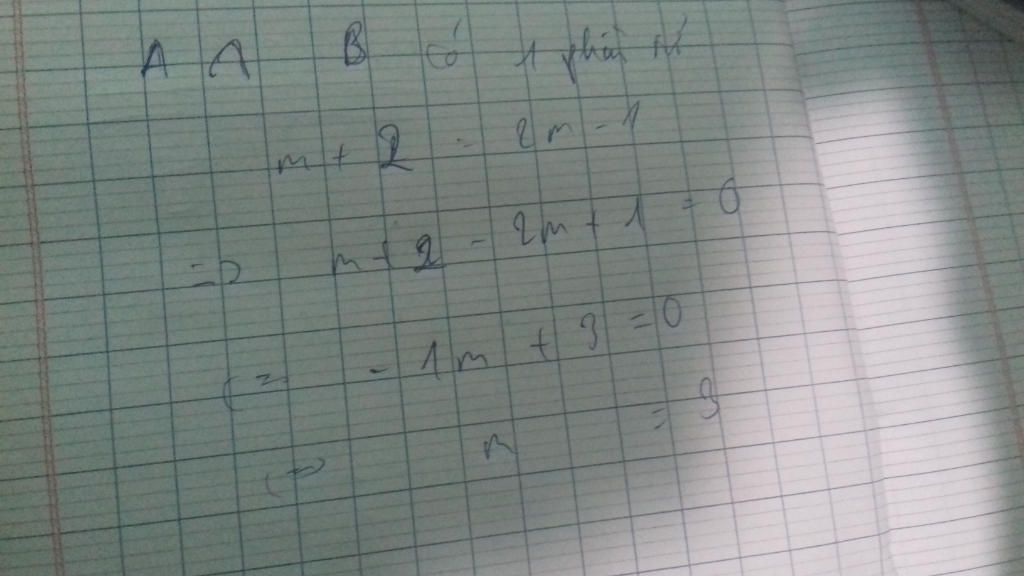 A ∩ B có 1 phần tử
m + 2 = 2m - 1
=> m + 2 - 2m + 1 = 0
<=> - 1m + 3 = 0
<=> m = 3